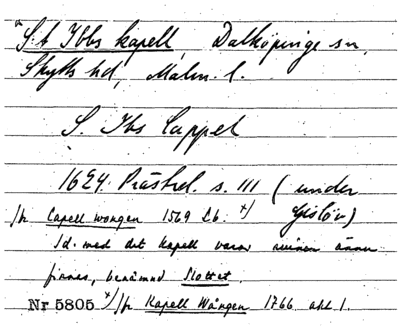 * S:t Ibbs kapell, Dalköpinge sn,
Skytts hd, Malm. l.
S. Ibs Cappel
1624. Prästrel. s. 111 (under
Gislöv)
/fr Capell wongen 1569 Lb. x/
Id. med det kapell varav ruinen ännu
finnes, benämnd Slottet.
Nr 5805 x/ /fr Kapell Wången 1766 akt 1.